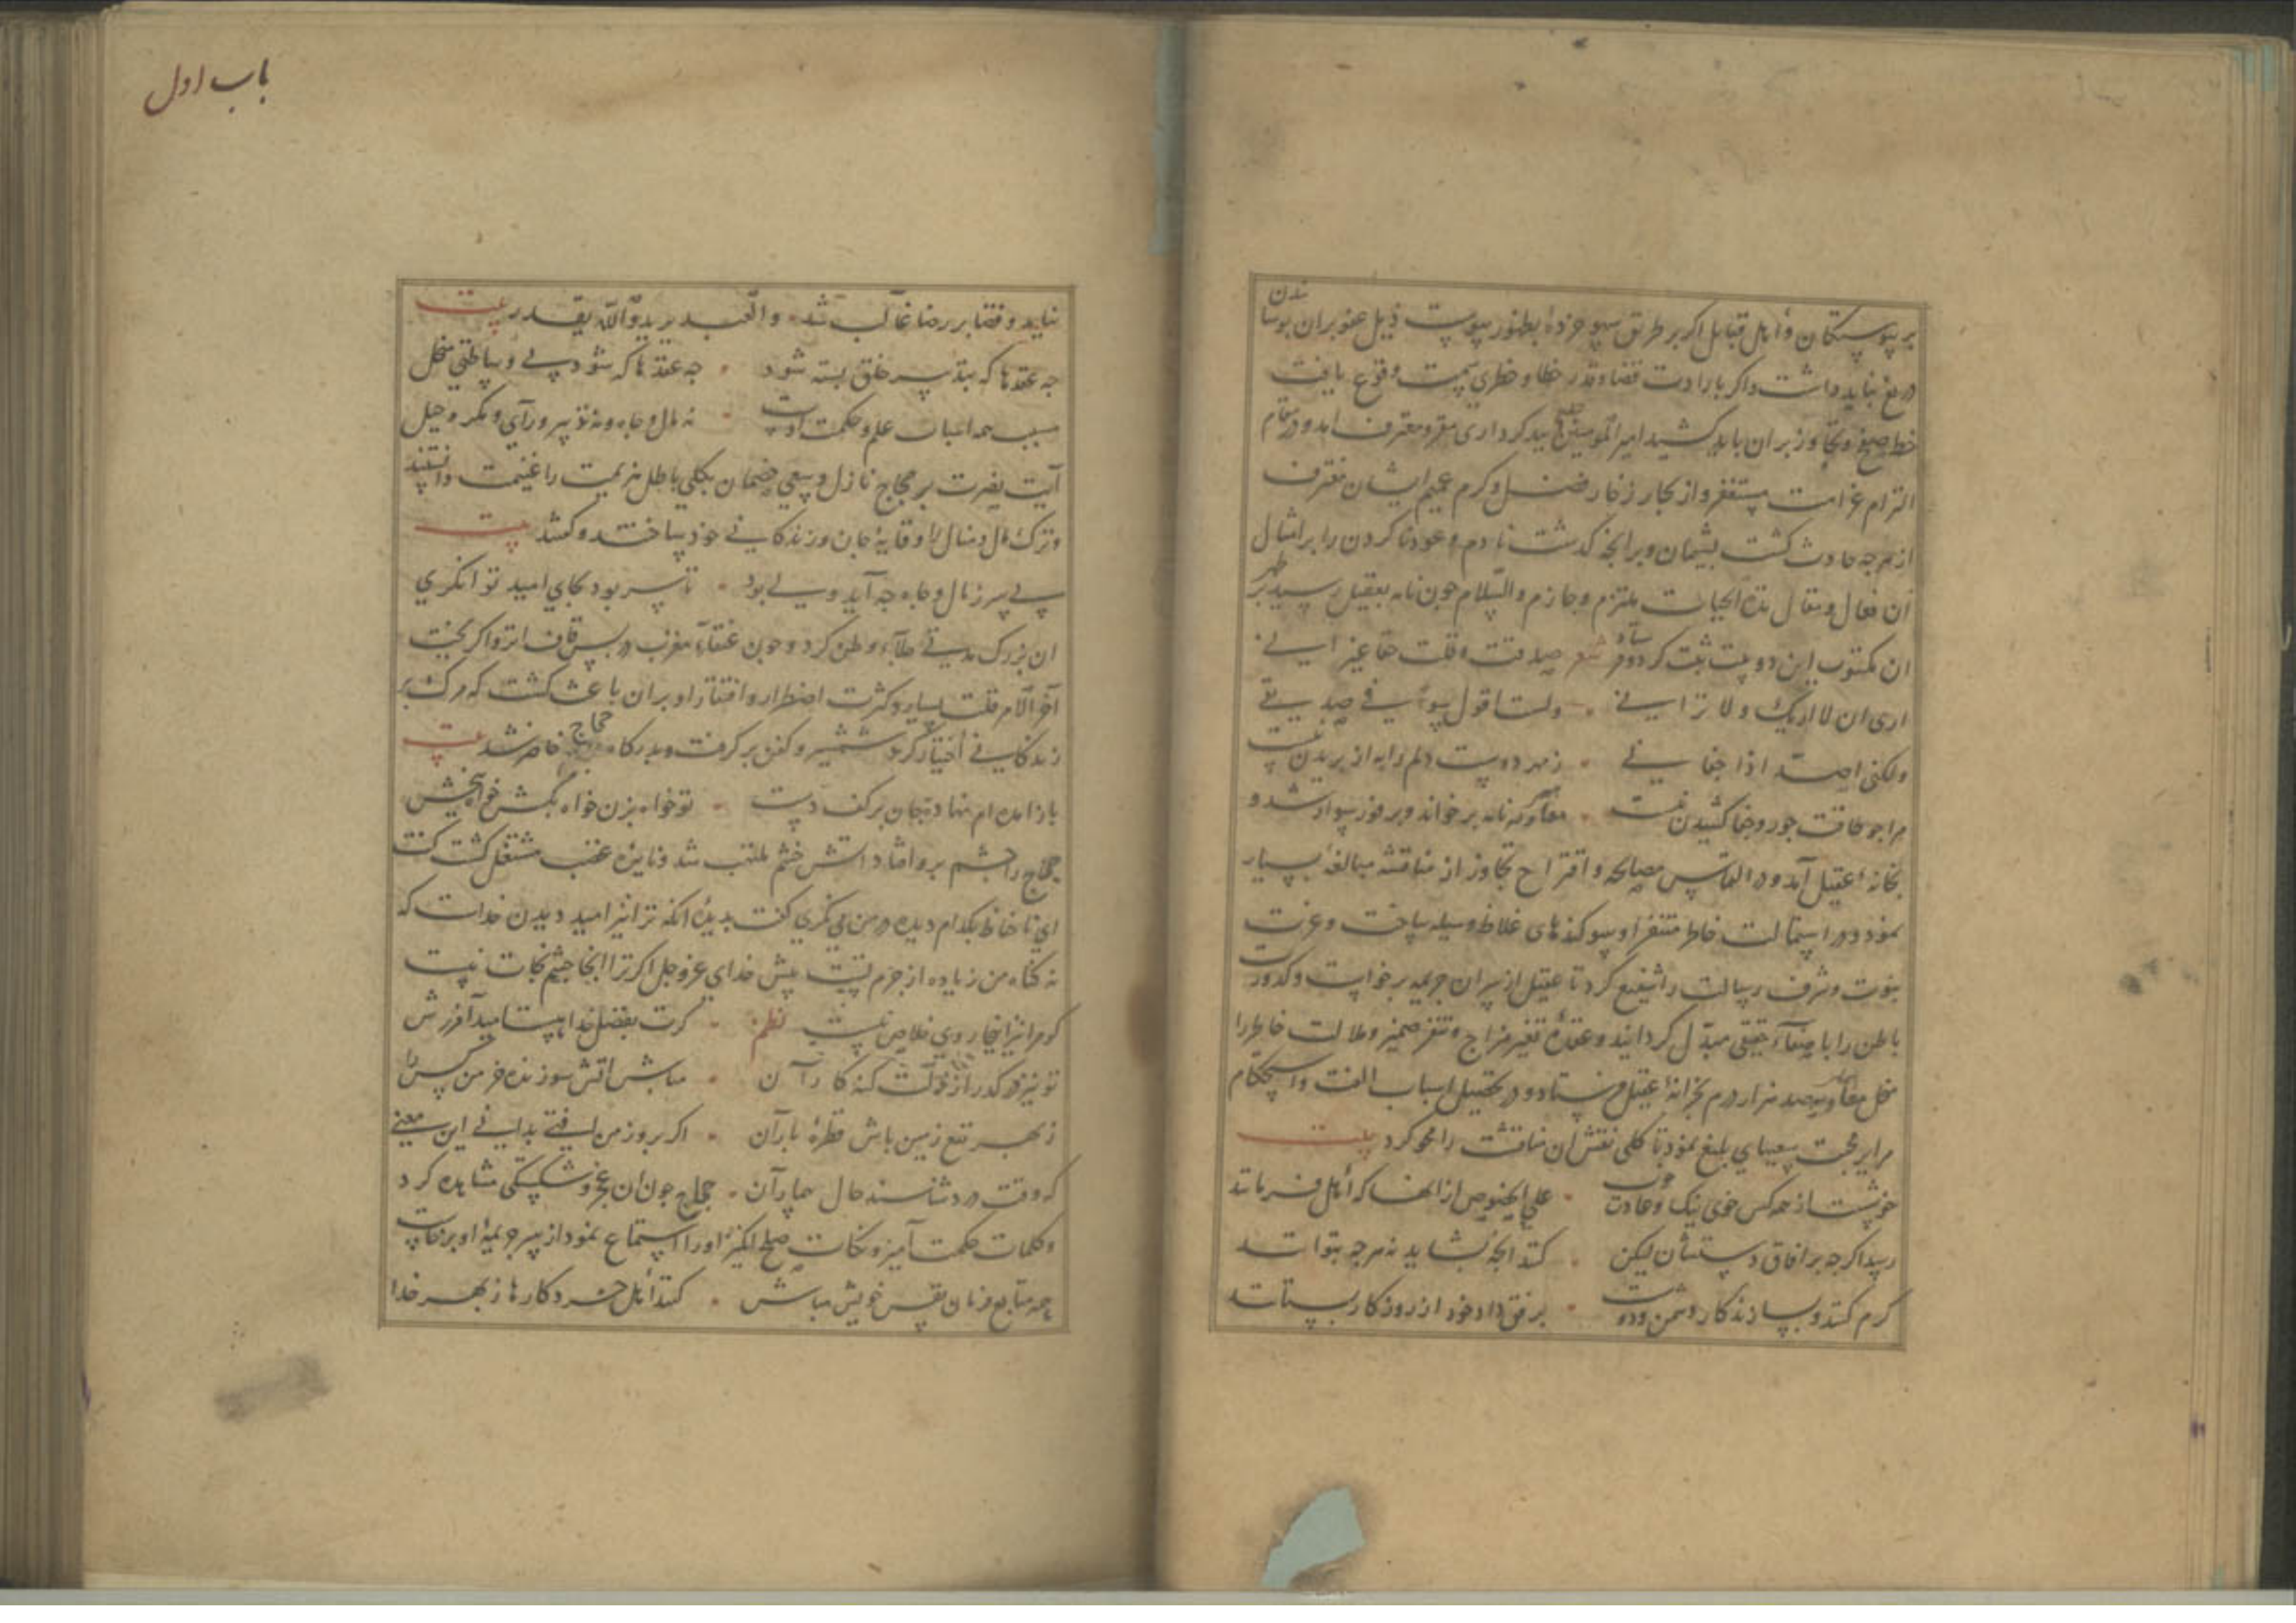 بر پیوستگان و اهل قبایل اگر بر طریق سهو خرده بظهور پیوست ذیل عفو بران پوشانیدن
دریغ نباید داشت و اگر بارادت قضا و قدر خطا و خطری سمت وقوع یافت
خط صفح و تجاوز بران باید کشید امیر المومنین باید کرداری مقر و معترف آمد و در مقام
التزام غرامت مستغفر و از بحار زخار فضل و کرم عمیم ایشان مغترف
از هرچه حادث کشت پشیمان و بر آنچه کذشت نادم و عود ناکردن را بر امثال
آن فعال و مقال مدة الحیات ملتزم و جازم والسلام چون نامه بعقیل رسید بر ظهر
ان مکتوب این دو بیت ثبت کرد و فرستاد شعر صدقت و قلت حقا غیر انی
اری ان لا اریک و لا ترانی ولست اقول سوءا فی صدیقی
ولکنی اصد اذا جفانی ز مهر دوست دلم را به از بریدن نیست بیت
مرا چو طاقت جور و جفا کشیدن نیست معاویه نامه برخواند و بر فور سوار شد و
بخانه عقیل آمد و در التماس مصالحه و اقتراح تجاوز از مناقشه مبالغه بسیار
نمود و در استمالت خاطر متنفر او سوکندهای غلاظ وسیله ساخت و عزت
نبوت و شرف رسالت را شفیع کرد تا عقیل از سر ان جریمه برخواست و کدورت
باطن را با صفاء حقیقی مبدل کردانید و عقده تغیر مزاج و تنفر ضمیر و ملالت خاطر را
منحل معاویه صد هزار درم بخزانه عقیل فرستاد و در تحصیل اسباب الفت و استحکام
مرایر محبت سعیهای بلیغ نمود تا کلی نقش ان مناقشت را محو کرد بیت
خوشست از همه کس خوی نیک و عادت خوب علی الخصوص از آنها که اهل فرمانند
رسد اکرچه بر آفاق دستشان لیکن کنند آنچه بشاید نه هرچه بتوانند
کرم کنند و بسازند کار دشمن و دوست برفق داد خود از روزکار بستانند
باب اول
نیاید و قضا بر رضا غالب شد والعبد یرید والله یقدر بیت
چه عقدها که بتدبیر خلق بسته شود چه عقدها که شود بی وساطتی منحل
مسبب همه اسباب علم و حکمت اوست نه مال و جاه و نه تدبیر و رآی و مکر و حیل
آیت نصرت بر حجاج نازل و سعی خصمان بکلی باطل هزیمت را غنیمت دانستند
و ترک مال و منال را وقایه جان و زندکانی خود ساختند و کفتند بیت
بی سر ز مال و جاه چه آید ولی بود تا سر بود بجای امید توانکری
ان بزرک مدتی جلآء وطن کرد و چون عنقآء مغرب در پس قاف انزوا کریخت
آخر الامر قلت یسار و کثرت اضطرار و افتقار او بران باعث کشت که مرک بر
زندکانی اختیار کرد شمشیر و کفن بر کرفت و بدرکاه حجاج حاضر شد بیت
باز آمده ام نهاده جان بر کف دست تو خواه بزن خواه بکش خواه ببخش
حجاج را چشم برو افتاد آتش خشم ملتهب شد و نایره غضب مشتعل کشت کفت
ای تا حافظ بکدام دیده در من می نکری کفت بدیده آنکه ترا نیز امید دیدن خداست که
نه کناه من زیاده از جرم تست پیش خدای عز و جل اکر ترا آنجا چشم نجات نیست
کو مرا نیز اینجا روی خلاص نیست نظم کرت بفضل خدا هست امید آمرزش
تو نیز در کذر از زلت کنه کاران مباش آتش سوزنده خرمن کس را
ز بهر نفع زمین باش قطره باران اکر بروز من افتی بدانی این معنی
که وقت درد شناسند حال بیماران حجاج چون ان عجز و شکستکی مشاهده کرد
و کلمات حکمت آمیز و نکات صلح انکیز او را استماع نمود از سر جریمه او برخاست
همه متابع فرمان نفس خویش مباش کنند اهل خرد کارها ز بهر خدا